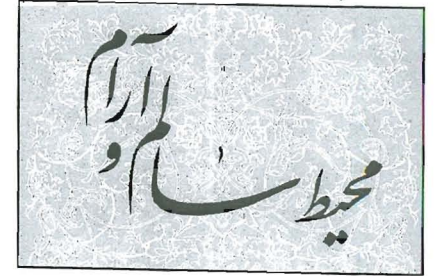 محیط سالم و آرام